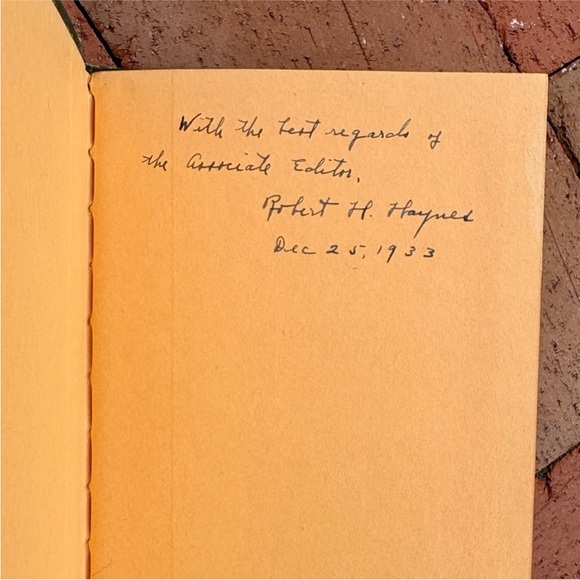 With the best regards of
the Associate Editor.
Robert H. Haynes
Dec 25, 1933